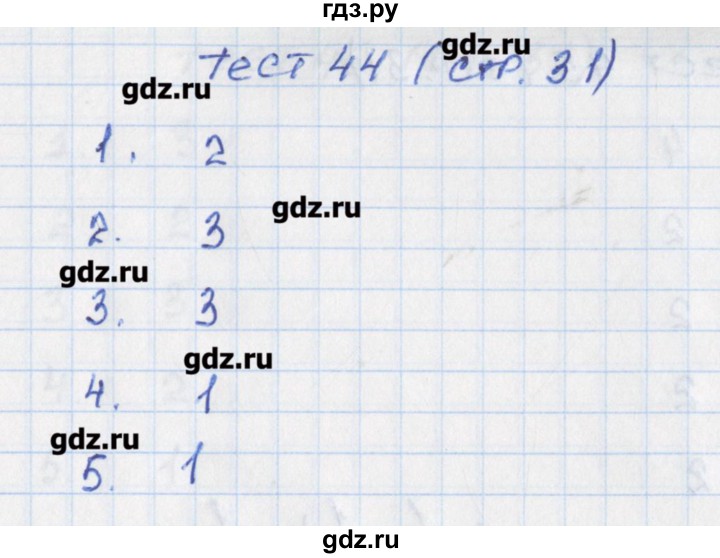 гдз.ру
gdz.ru
Тест 44 (стр. 31)
gdz.ru
1. 2
gdz.ru
2. 3
gdz.ru
3. 3
gdz.ru
4. 1
gdz.ru
5. 1
gdz.ru